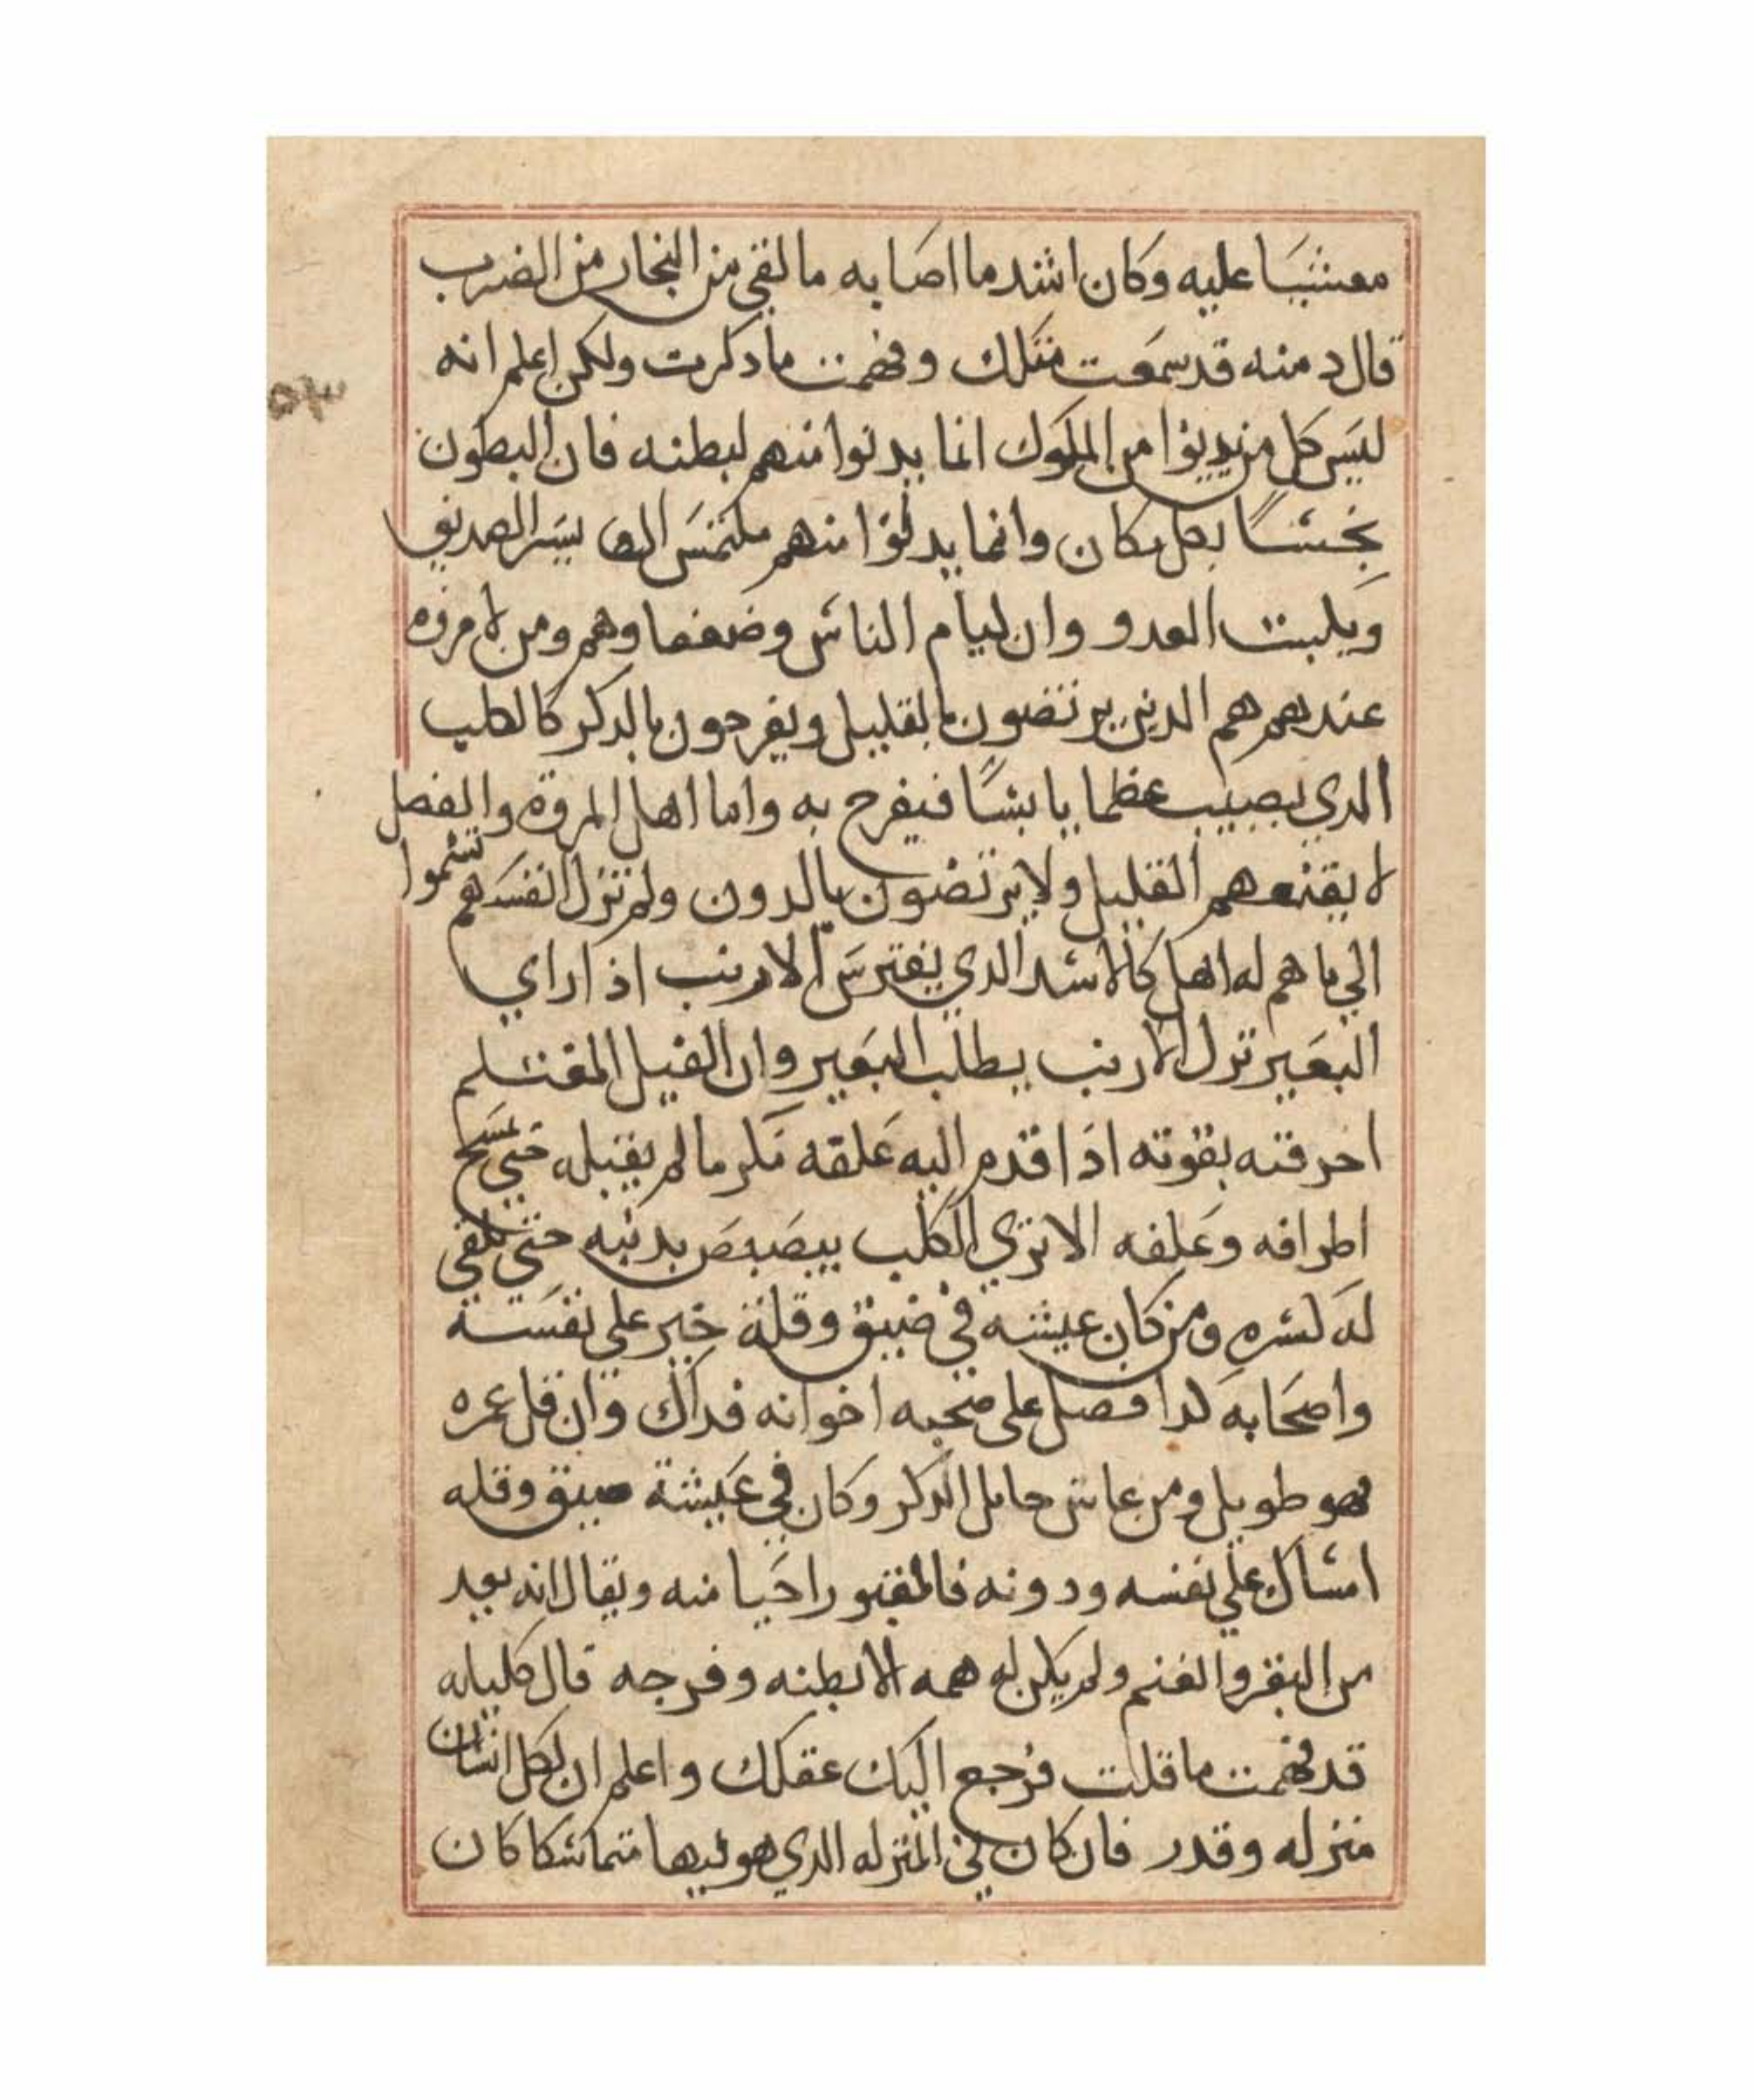 مغشيا عليه وكان اشد ما اصابه ما لقي من النجار من الضرب
قال دمنه قد سمعت مثلك وفهمت ما دكرت ولكن اعلم انه
ليس كل من يدنوا من الملوك انما يدنوا منهم لبطنه فان البطون
تحشا بكل مكان وانما يدنوا منهم ملتمس يسر الصديق
ويكبت العدو وان ليام الناس وضعفاوهم ومن لا مروه
عندهم هم الدين يرتضون بالقليل ويفرحون بالدكر كالكلب
الدي يصيب عظما يابسا فيفرح به واما اهل المروة والفضل
لا يقنعهم القليل ولا يرتضون بالدون ولم تزل انفسهم تسموا
الي ما هم له اهل كالاسد الدي يفترس الارنب اذا راي
البعير ترك الارنب يطلب البعير وان الفيل المغتلم
احرفته بقوته اذا قدم اليه علفه مكرما لم يقبله حتى تمسح
اطرافه وعلفه الا تري الكلب يبصبص بدنبه حتى تلقي
له كسره ومن كان عيشه في ضيق وقلة خير على نفسه
واصحابه لدا فضل على محبه اخوانه فداك وان قل عمره
فهو طويل ومن عاش حامل الدكر وكان في عيشة ضيق وقله
امساك على نفسه ودونه فالمقبور احيا منه ويقال انه يعد
من البقر والغنم ولم يكن له همه الا بطنه وفرجه قال كليله
قد فهمت ما قلت فرجع اليك عقلك واعلم ان لكل انسان
منزله وقدر فان كان في المنزله الدي هو فيها متماسكا كان